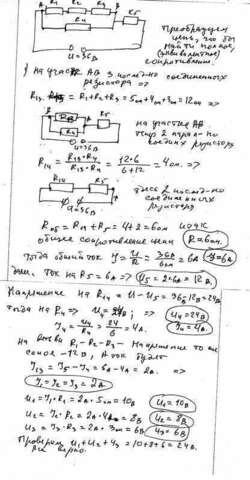 R₁ R₂ R₃ R₅
R₄
U=36В
Преобразуем
цепь, что бы
найти полное,
(эквивалентное)
сопротивление.
1) На участке AB 3 послед-но соединенных
резистора =>
R₁₃ = R₁+R₂+R₃ = 5ом+4ом+3ом = 12ом =>
на участке AB
2 парал-но
соедин резистора
U=36В
R₁₄ = R₁₃·R₄ / R₁₃+R₄ = 12·6 / 6+12 = 4ом. =>
R₁₄ R₅
здесь 2 послед-но
соединенных
резистора
U=36В
Rоб = R₁₄ + R₅ = 4+2 = 6ом
общее сопротивление цепи R=6ом.
Тогда общий ток I = U/R = 36В/6ом = 6А I=6А
Ток на R₅ = 6А => U₅ = 2·6А = 12В.
Напряжение на R₁₄ = U − U₅ = 36В−12В = 24В
тогда на R₄ => U₄ = 24В; U₄=24В
I₄ = U₄/R₄ = 24/6 = 4А. I₄=4А.
R₁-R₂-R₃ - Напряжение то же
самое -12В, А ток будет
I₁₃ = I₅ − I₄ = 6А−4А = 2А. =>
I₁ = I₂ = I₃ = 2А
U₁ = I₁·R₁ = 2А·5ом = 10В U₁=10В
U₂ = I₂·R₂ = 2А·4ом = 8В U₂=8В
U₃ = I₃·R₃ = 2А·3ом = 6В U₃=6В
Проверим U₁+U₂+U₃ = 10+8+6 = 24В.
все верно.